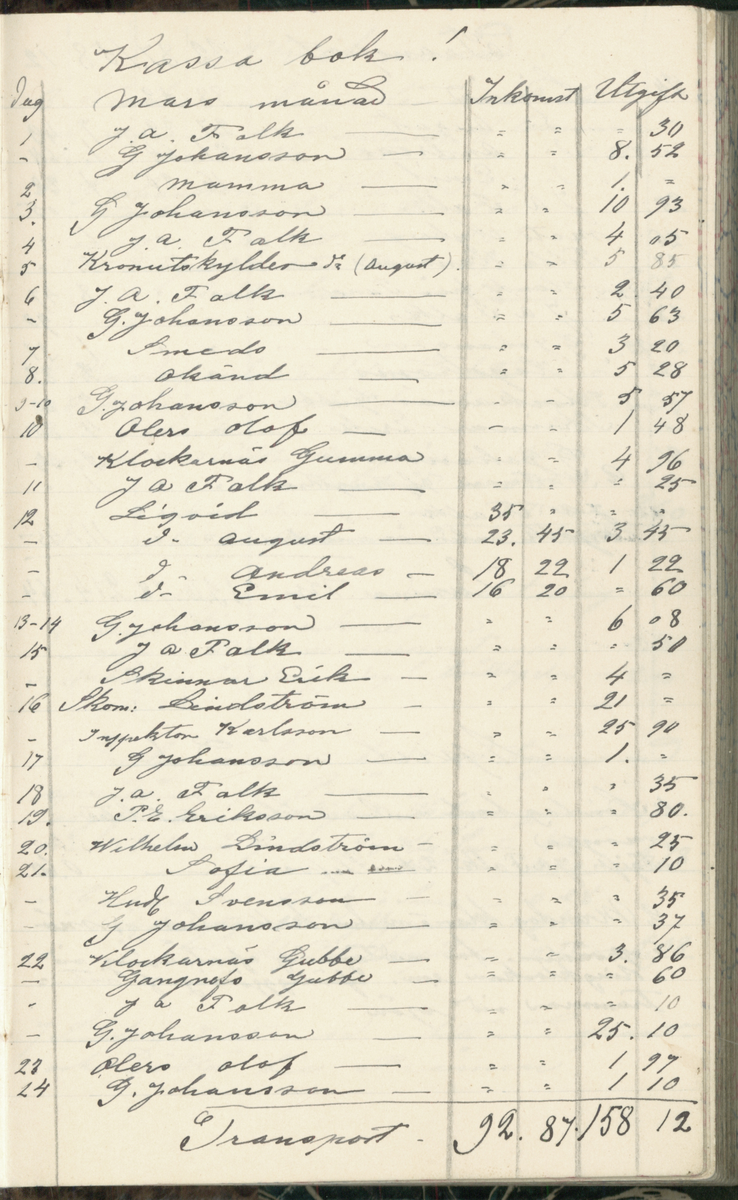 Kassa bok!
Dag Mars månad Inkomst Utgift
1 J. A. Falk — " " " 30
- G Johansson — " " 8. 52
2 Mamma — " " 1. "
3. G Johansson — " " 10 93
4 J. A. Falk — " " 4 05
5 Kronutskylder (August). " " 5 85
6 J. A. Falk — " " 2 40
- G. Johansson — " " 5 63
7 Smeds — " " 3 20
8. Okänd — " " 5 28
9-10 G. Johansson — - - 5 57
10 Olers Olof — - - 1 48
- Klockarnäs Gumma " " 4 96
11 J A Falk — " " " 25
12 Liqvid — 35 " " "
- d- August — 23. 45 3 45
- d- Andreas — 18 22 1 22
- d- Emil — 16 20 " 60
13-14 G. Johansson — " " 6 08
15 J A Falk — " " " 50
- Skinnar Erik — " " 4 "
16 Skom: Lindström — " " 21 "
- Inspektor Karlsson — " " 25 90
17 G Johansson — " " 1. "
18 J. A. Falk — " " " 35
19. P. E. Eriksson — " " " 80.
20. Wilhelm Lindström — " " " 25
21. Sofia — " " " 10
- Svensson — " " " 35
- G Johansson — " " " 37
22 Klockarnäs Gubbe — " " 3. 86
- Gangnefs Gubbe — " " " 60
- J A Falk — " " " 10
- G. Johansson — " " 25. 10
23 Olers Olof — " " 1 97
24 G. Johansson — " " 1 10
Transport - 92. 87. 158 12